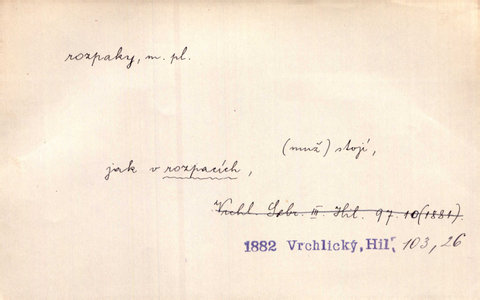 rozpaky, m. pl.
(muž) stojí,
jak v rozpacích,
Vrchl. Sebr. III. Hil. 97. 10 (1881).
1882 Vrchlický, Hil. 103, 26